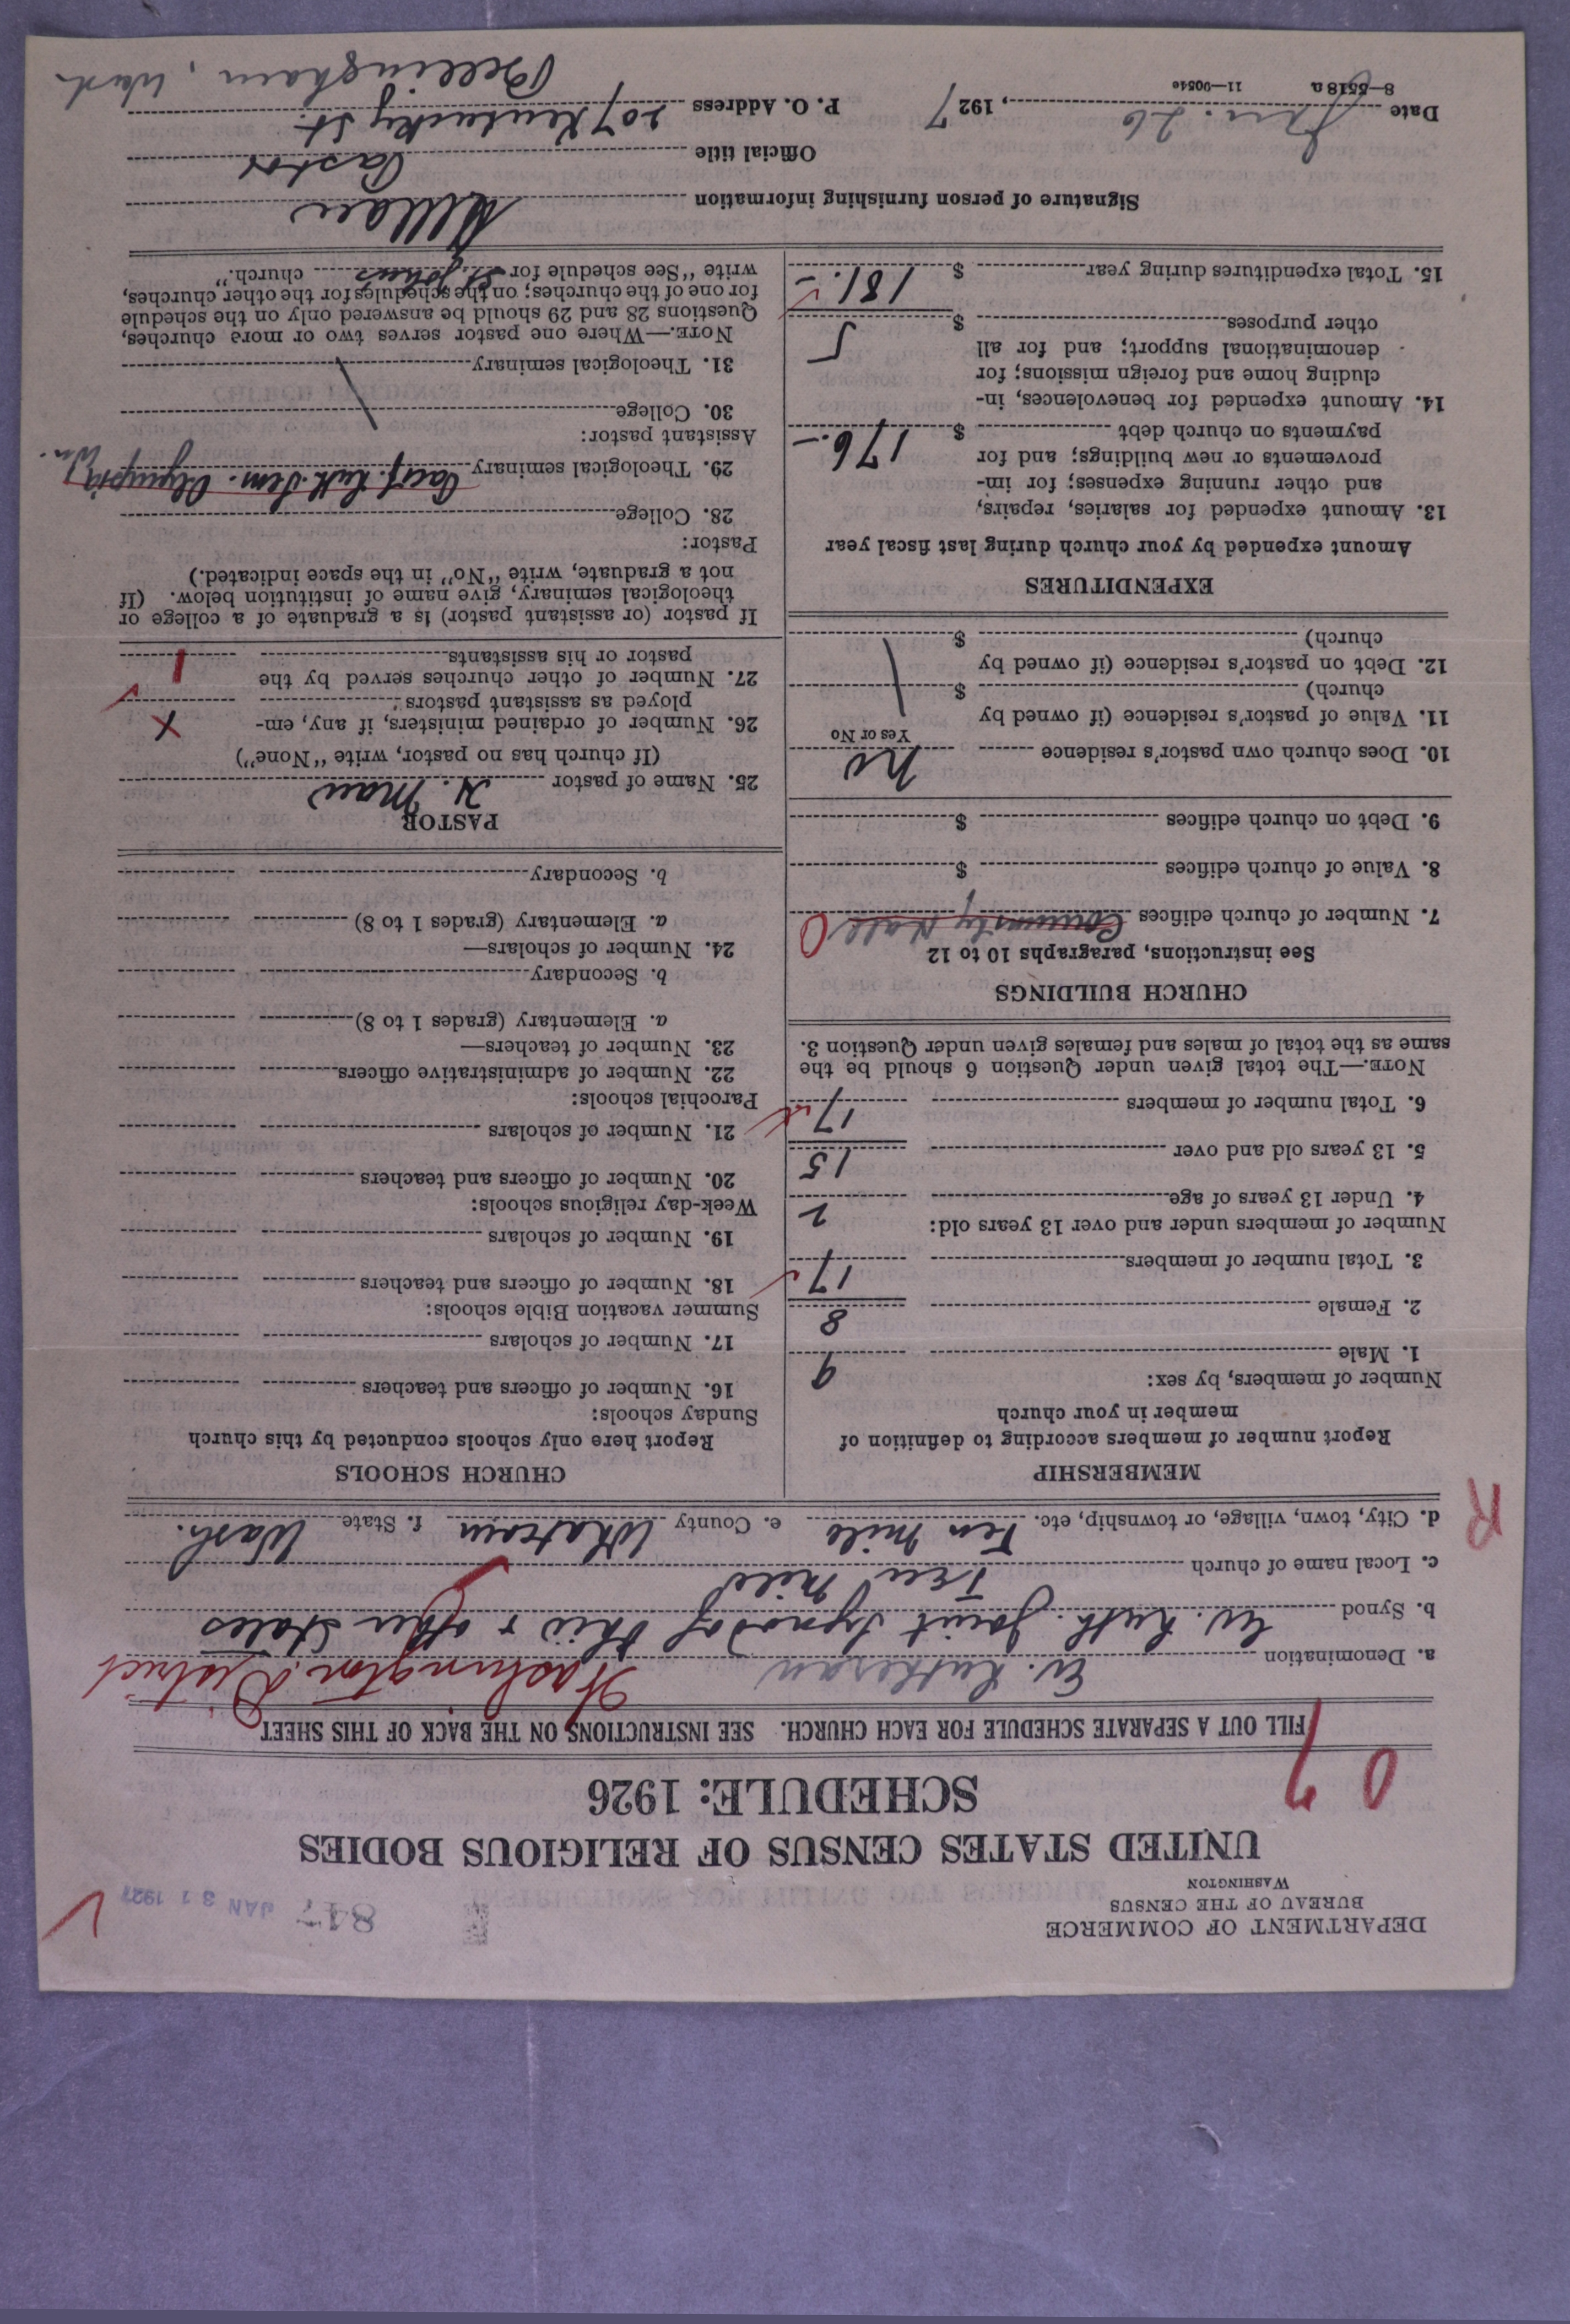 DEPARTMENT OF COMMERCE
BUREAU OF THE CENSUS
WASHINGTON
847 JAN 31 1927
UNITED STATES CENSUS OF RELIGIOUS BODIES
SCHEDULE: 1926
FILL OUT A SEPARATE SCHEDULE FOR EACH CHURCH. SEE INSTRUCTIONS ON THE BACK OF THIS SHEET
a. Denomination Ev. Lutheran Washington District
b. Synod Ev. Luth. Joint Synod of Ohio & other States
c. Local name of church Ten Mile
d. City, town, village, or township, etc. Ten Mile e. County Whatcom f. State Wash.
R
MEMBERSHIP
Report number of members according to definition of
member in your church
Number of members, by sex:
1. Male 9
2. Female 8
3. Total number of members 17
Number of members under and over 13 years old:
4. Under 13 years of age 2
5. 13 years old and over 15
6. Total number of members 17
NOTE.—The total given under Question 6 should be the
same as the total of males and females given under Question 3.
CHURCH BUILDINGS
See instructions, paragraphs 10 to 12
7. Number of church edifices Community Hall 0
8. Value of church edifices $
9. Debt on church edifices $
10. Does church own pastor's residence no
Yes or No
11. Value of pastor's residence (if owned by
church) $
12. Debt on pastor's residence (if owned by
church) $
EXPENDITURES
Amount expended by your church during last fiscal year
13. Amount expended for salaries, repairs,
and other running expenses; for im-
provements or new buildings; and for
payments on church debt $ 176.—
14. Amount expended for benevolences, in-
cluding home and foreign missions; for
denominational support; and for all
other purposes $ 5
15. Total expenditures during year $ 181.—
CHURCH SCHOOLS
Report here only schools conducted by this church
Sunday schools:
16. Number of officers and teachers
17. Number of scholars
Summer vacation Bible schools:
18. Number of officers and teachers
19. Number of scholars
Week-day religious schools:
20. Number of officers and teachers
21. Number of scholars
Parochial schools:
22. Number of administrative officers
23. Number of teachers—
a. Elementary (grades 1 to 8)
b. Secondary
24. Number of scholars—
a. Elementary (grades 1 to 8)
b. Secondary
PASTOR
25. Name of pastor H. Mau
(If church has no pastor, write "None")
26. Number of ordained ministers, if any, em-
ployed as assistant pastors x
27. Number of other churches served by the
pastor or his assistants 1
If pastor (or assistant pastor) is a graduate of a college or
theological seminary, give name of institution below. (If
not a graduate, write "No" in the space indicated.)
Pastor:
28. College
29. Theological seminary Pacif. Luth. Sem. Olympia, Wn.
Assistant pastor:
30. College
31. Theological seminary
NOTE.—Where one pastor serves two or more churches,
Questions 28 and 29 should be answered only on the schedule
for one of the churches; on the schedules for the other churches,
write "See schedule for St. Johns church."
Signature of person furnishing information HMau
Official title Pastor
Date Jan. 26, 1927 P. O. Address 207 Kentucky St.
8—5518 a 11—9054e Bellingham, Wash